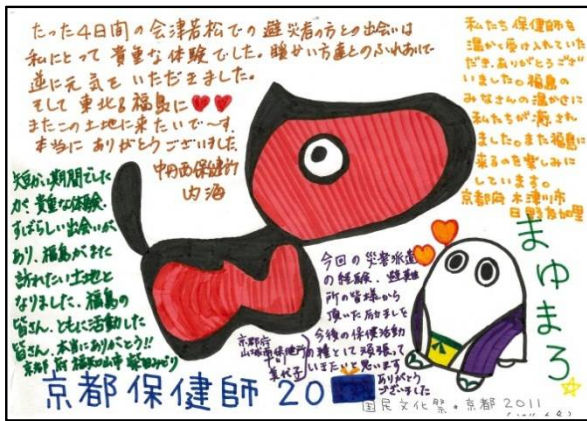 たった4日間の会津若松での避災者の方との出会いは
私にとって貴重な体験でした。暖かい方達とのふれあいで
逆に元気をいただきました。
そして東北&福島に♥♥
またこの土地に来たいで〜す。
本当にありがとうございました。
中丹西保健所
内海
私たち保健師を
温かく受け入れていた
だき、ありがとうござ
いました。福島の
みなさんの温かさに
私たちが癒され
ました。また福島に
来るのを楽しみに
しています。
京都府木津川市
日野
短かい期間でした
が、貴重な体験、
すばらしい出会いが
あり、福島がまた
訪れたい土地と
なりました。福島の
皆さん、ともに活動した
皆さん、本当にありがとう!!
京都府福知山市
今回の災害派遣
の経験、避難
所の皆様から
頂いた励ましを
今後の保健活動
の糧として頑張って
いきたいと思います
ありがとう
ございました
京都府
山城南保健所
美代子
まゆまろ
京都保健師 20
国民文化祭・京都 2011